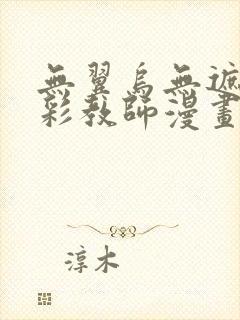 無翼烏無遮
彩教師漫畫
淳木